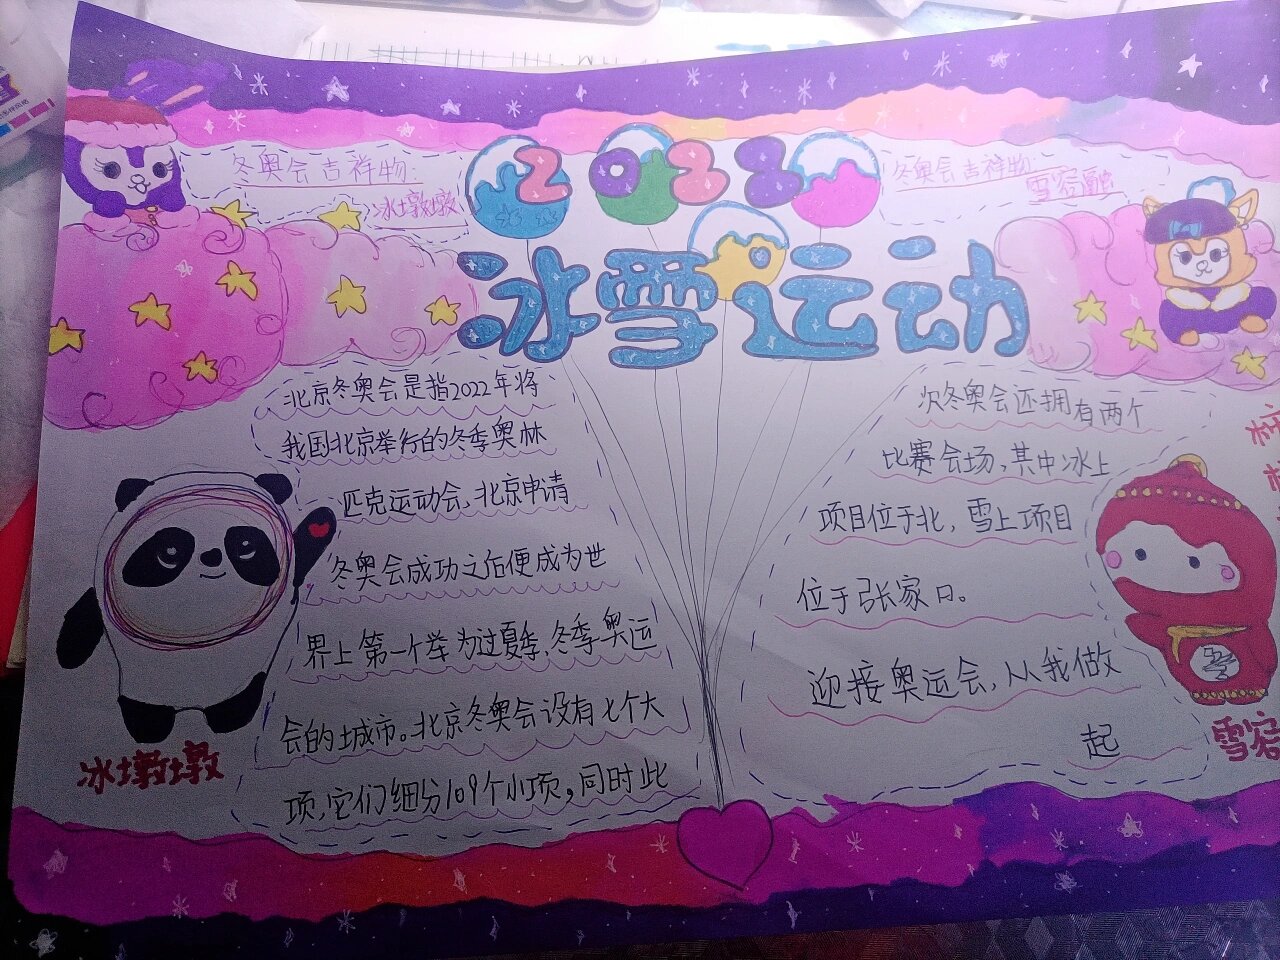 2022
冰雪运动
冬奥会吉祥物:
冰墩墩
冬奥会吉祥物:
雪容融
北京冬奥会是指2022年将
我国北京举行的冬季奥林
匹克运动会,北京申请
冬奥会成功之后便成为世
界上第一个举为过夏季,冬季奥运
会的城市。北京冬奥会设有七个大
项,它们细分109个小项,同时此
次冬奥会还拥有两个
比赛会场,其中冰上
项目位于北,雪上项目
位于张家口。
迎接奥运会,从我做
起
冰墩墩
雪容